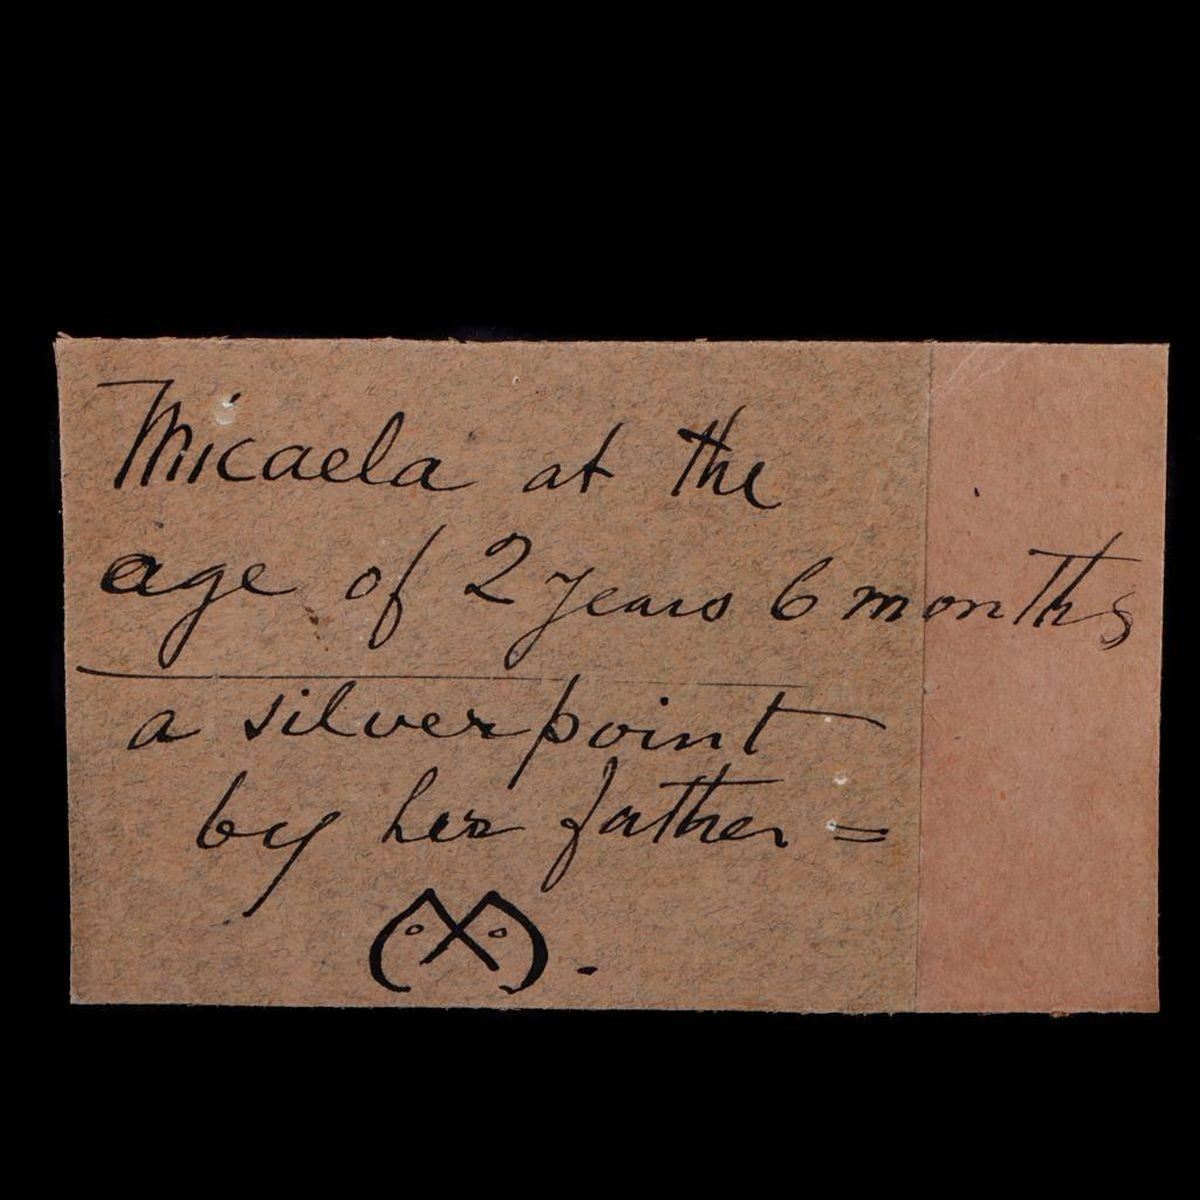 Micaela at the
age of 2 years 6 months
a silverpoint
by her father =